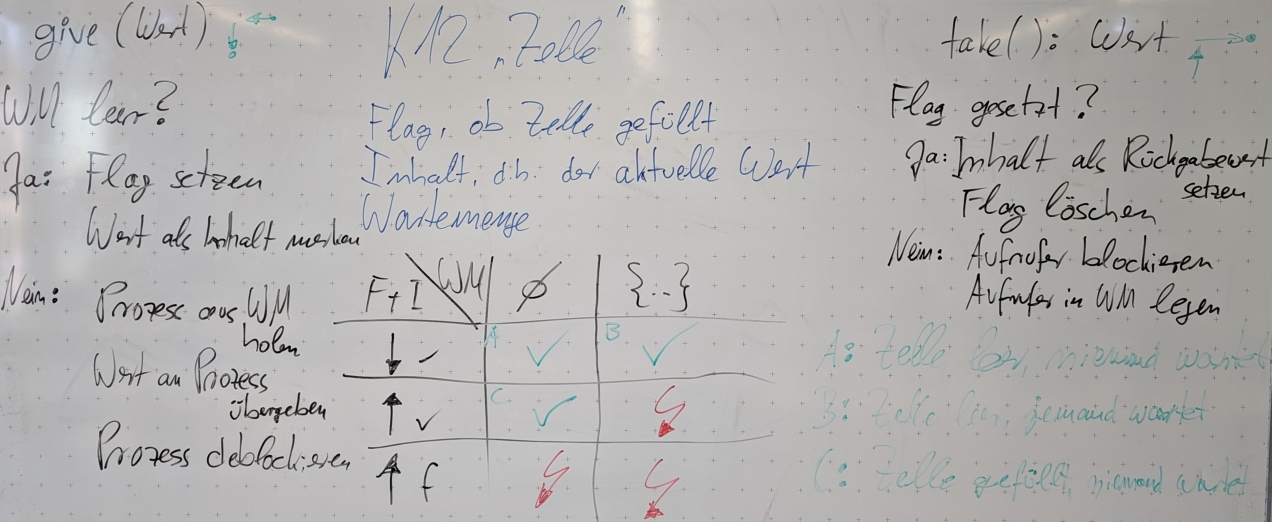 give (Wert)
WM leer?
Ja: Flag setzen
Wert als Inhalt merken
Nein: Prozess aus WM
holen
Wert an Prozess
übergeben
Prozess deblockieren
K12 „Zelle“
Flag, ob Zelle gefüllt
Inhalt, d.h. der aktuelle Wert
Wartemenge
F+I WM ∅ {..}
↓ – A ✓ B ✓
↑ v C ✓
↑ f
take(): Wert
Flag gesetzt?
Ja: Inhalt als Rückgabewert
setzen
Flag löschen
Nein: Aufrufer blockieren
Aufrufer in WM legen
A: Zelle leer, niemand wartet
B: Zelle leer, jemand wartet
C: Zelle gefüllt, niemand wartet